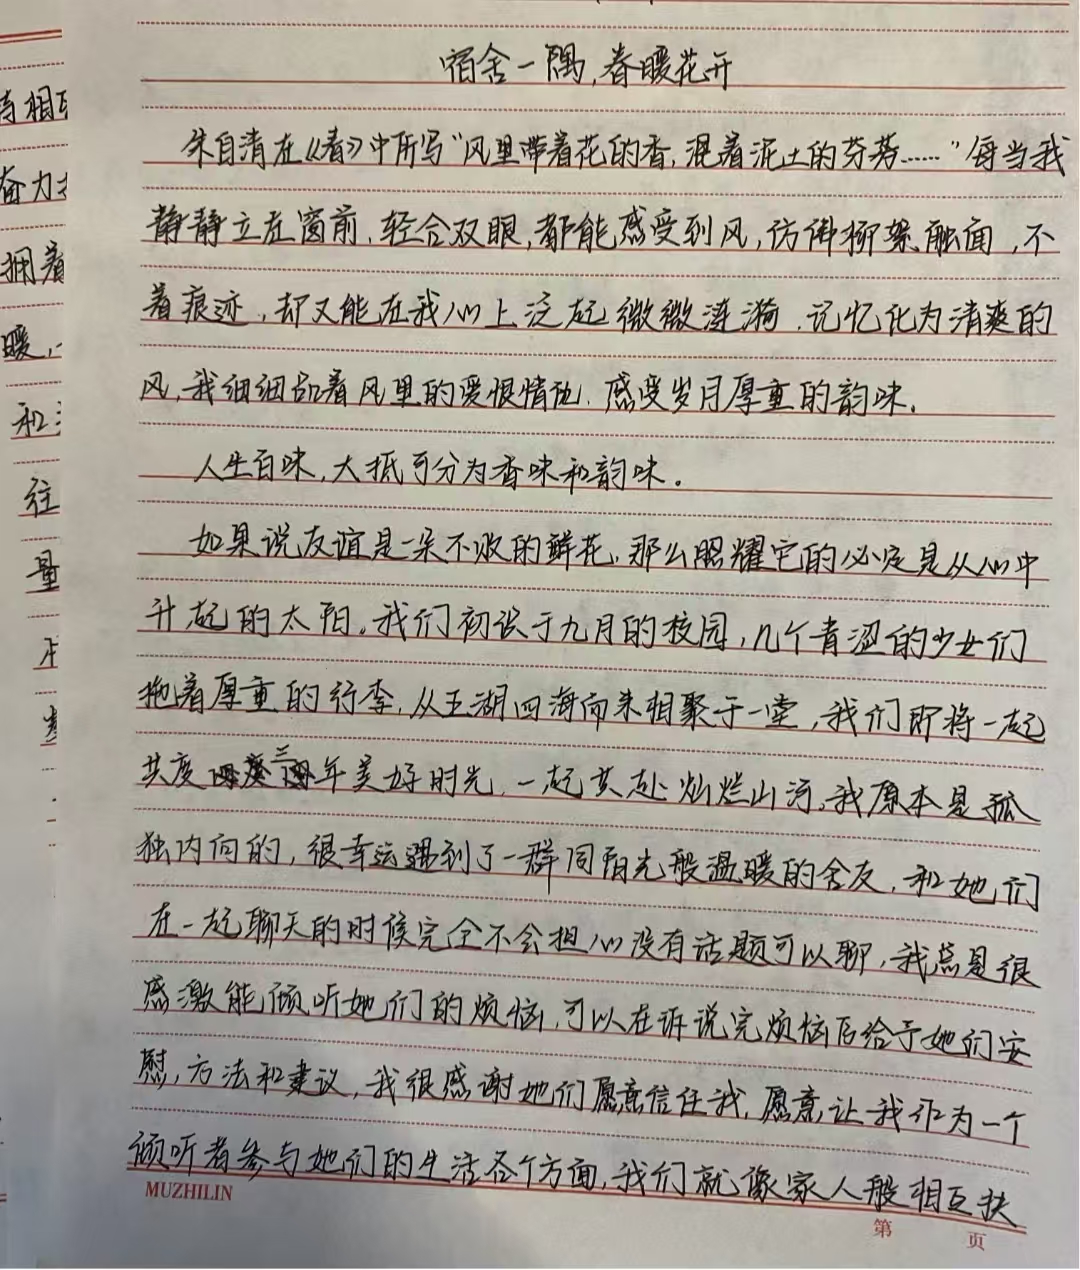 宿舍一隅,春暖花开
朱自清在《春》中所写“风里带着花的香,混着泥土的芬芳……”每当我
静静立在窗前、轻合双眼,都能感受到风,仿佛柳絮触面,不
着痕迹,却又能在我心上泛起微微涟漪.记忆化为清爽的
风,我细细品着风里的爱恨情仇.感受岁月厚重的韵味.
人生百味,大抵可分为香味和韵味。
如果说友谊是一朵不败的鲜花,那么照耀它的必定是从心中
升起的太阳。我们初设于九月的校园,几个青涩的少女们
拖着厚重的行李,从五湖四海而来相聚于一堂,我们即将一起
共度三年美好时光,一起共赴灿烂山河,我原本是孤
独内向的,很幸运遇到了一群同阳光般温暖的舍友,和她们
在一起聊天的时候完全不会担心没有话题可以聊,我总是很
感激能倾听她们的烦恼,可以在诉说完烦恼后给予她们安
慰,方法和建议,我很感谢她们愿意信任我,愿意让我作为一个
倾听者参与她们的生活各个方面,我们就像家人般相互扶
MUZHILIN
第 页
相互
奋力
拥着
暖,
和
往
量